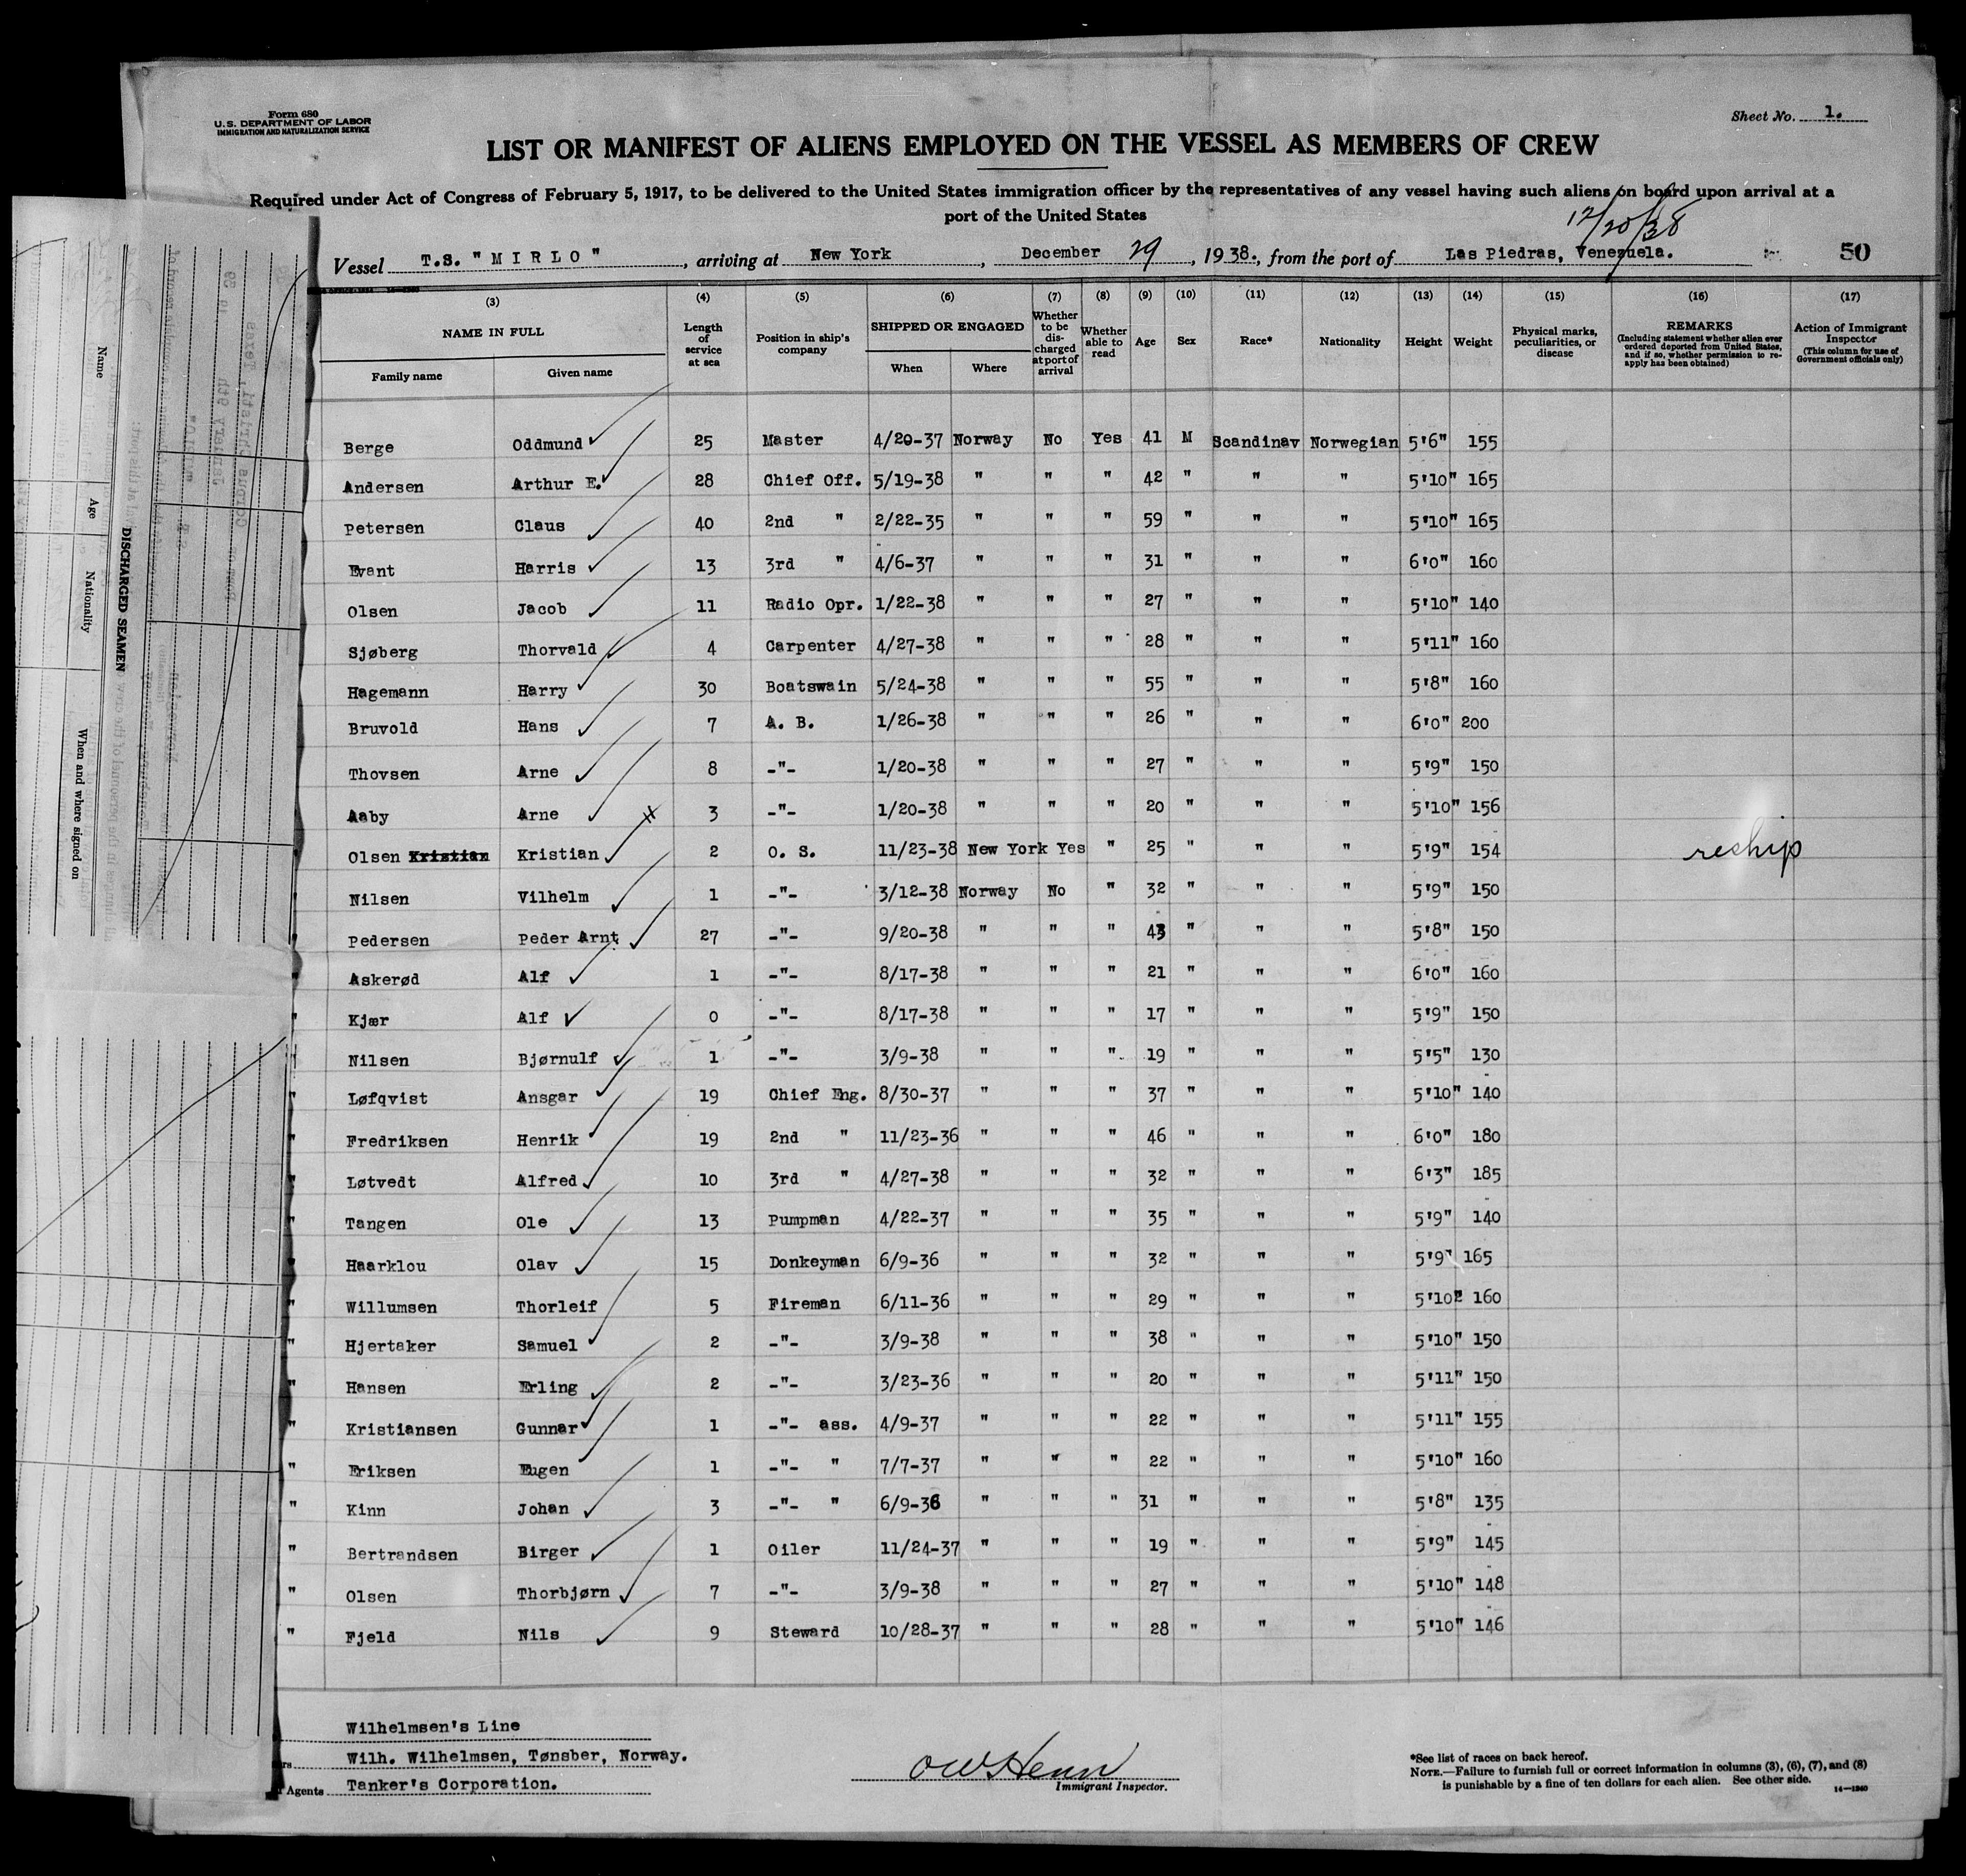 Form 680
U.S. DEPARTMENT OF LABOR
IMMIGRATION AND NATURALIZATION SERVICE
Sheet No. 1.
LIST OR MANIFEST OF ALIENS EMPLOYED ON THE VESSEL AS MEMBERS OF CREW
Required under Act of Congress of February 5, 1917, to be delivered to the United States immigration officer by the representatives of any vessel having such aliens on board upon arrival at a
port of the United States
12/20/38
Vessel T.S. "MIRLO", arriving at New York, December 29, 1938., from the port of Las Piedras, Venezuela. 50
(3) (4) (5) (6) (7) (8) (9) (10) (11) (12) (13) (14) (15) (16) (17)
NAME IN FULL Family name Given name
Length of service at sea
Position in ship's company
SHIPPED OR ENGAGED When Where
Whether to be discharged at port of arrival
Whether able to read
Age Sex Race* Nationality Height Weight
Physical marks, peculiarities, or disease
REMARKS (Including statement whether alien ever ordered deported from United States, and if so, whether permission to reapply has been obtained)
Action of Immigrant Inspector (This column for use of Government officials only)
Berge Oddmund 25 Master 4/20-37 Norway No Yes 41 M Scandinav Norwegian 5'6" 155
Andersen Arthur E. 28 Chief Off. 5/19-38 " " " 42 " " " 5'10" 165
Petersen Claus 40 2nd " 2/22-35 " " " 59 " " " 5'10" 165
Evant Harris 13 3rd " 4/6-37 " " " 31 " " " 6'0" 160
Olsen Jacob 11 Radio Opr. 1/22-38 " " " 27 " " " 5'10" 140
Sjøberg Thorvald 4 Carpenter 4/27-38 " " " 28 " " " 5'11" 160
Hagemann Harry 30 Boatswain 5/24-38 " " " 55 " " " 5'8" 160
Bruvold Hans 7 A. B. 1/26-38 " " " 26 " " " 6'0" 200
Thovsen Arne 8 -"- 1/20-38 " " " 27 " " " 5'9" 150
Aaby Arne 3 -"- 1/20-38 " " " 20 " " " 5'10" 156
Olsen Kristian Kristian 2 O. S. 11/23-38 New York Yes " 25 " " " 5'9" 154 reship
Nilsen Vilhelm 1 -"- 3/12-38 Norway No " 32 " " " 5'9" 150
Pedersen Peder Arnt. 27 -"- 9/20-38 " " " 43 " " " 5'8" 150
Askerød Alf 1 -"- 8/17-38 " " " 21 " " " 6'0" 160
" Kjær Alf 0 -"- 8/17-38 " " " 17 " " " 5'9" 150
" Nilsen Bjørnulf 1 -"- 3/9-38 " " " 19 " " " 5'5" 130
" Løfqvist Ansgar 19 Chief Eng. 8/30-37 " " " 37 " " " 5'10" 140
" Fredriksen Henrik 19 2nd " 11/23-36 " " " 46 " " " 6'0" 180
" Løtvedt Alfred 10 3rd " 4/27-38 " " " 32 " " " 6'3" 185
" Tangen Ole 13 Pumpman 4/22-37 " " " 35 " " " 5'9" 140
" Haarklou Olav 15 Donkeyman 6/9-36 " " " 32 " " " 5'9" 165
" Willumsen Thorleif 5 Fireman 6/11-36 " " " 29 " " " 5'10" 160
" Hjertaker Samuel 2 -"- 3/9-38 " " " 38 " " " 5'10" 150
" Hansen Erling 2 -"- 3/23-36 " " " 20 " " " 5'11" 150
" Kristiansen Gunnar 1 -"- ass. 4/9-37 " " " 22 " " " 5'11" 155
" Eriksen Eugen 1 -"- " 7/7-37 " " " 22 " " " 5'10" 160
" Kinn Johan 3 -"- " 6/9-36 " " " 31 " " " 5'8" 135
" Bertrandsen Birger 1 Oiler 11/24-37 " " " 19 " " " 5'9" 145
" Olsen Thorbjørn 7 -"- 3/9-38 " " " 27 " " " 5'10" 148
" Fjeld Nils 9 Steward 10/28-37 " " " 28 " " " 5'10" 146
Wilhelmsen's Line
Wilh. Wilhelmsen, Tønsber, Norway.
Agents Tanker's Corporation.
Immigrant Inspector.
*See list of races on back hereof.
NOTE.—Failure to furnish full or correct information in columns (3), (6), (7), and (8)
is punishable by a fine of ten dollars for each alien. See other side.
14—1240
DISCHARGED SEAMEN
Name Age Nationality When and where signed on